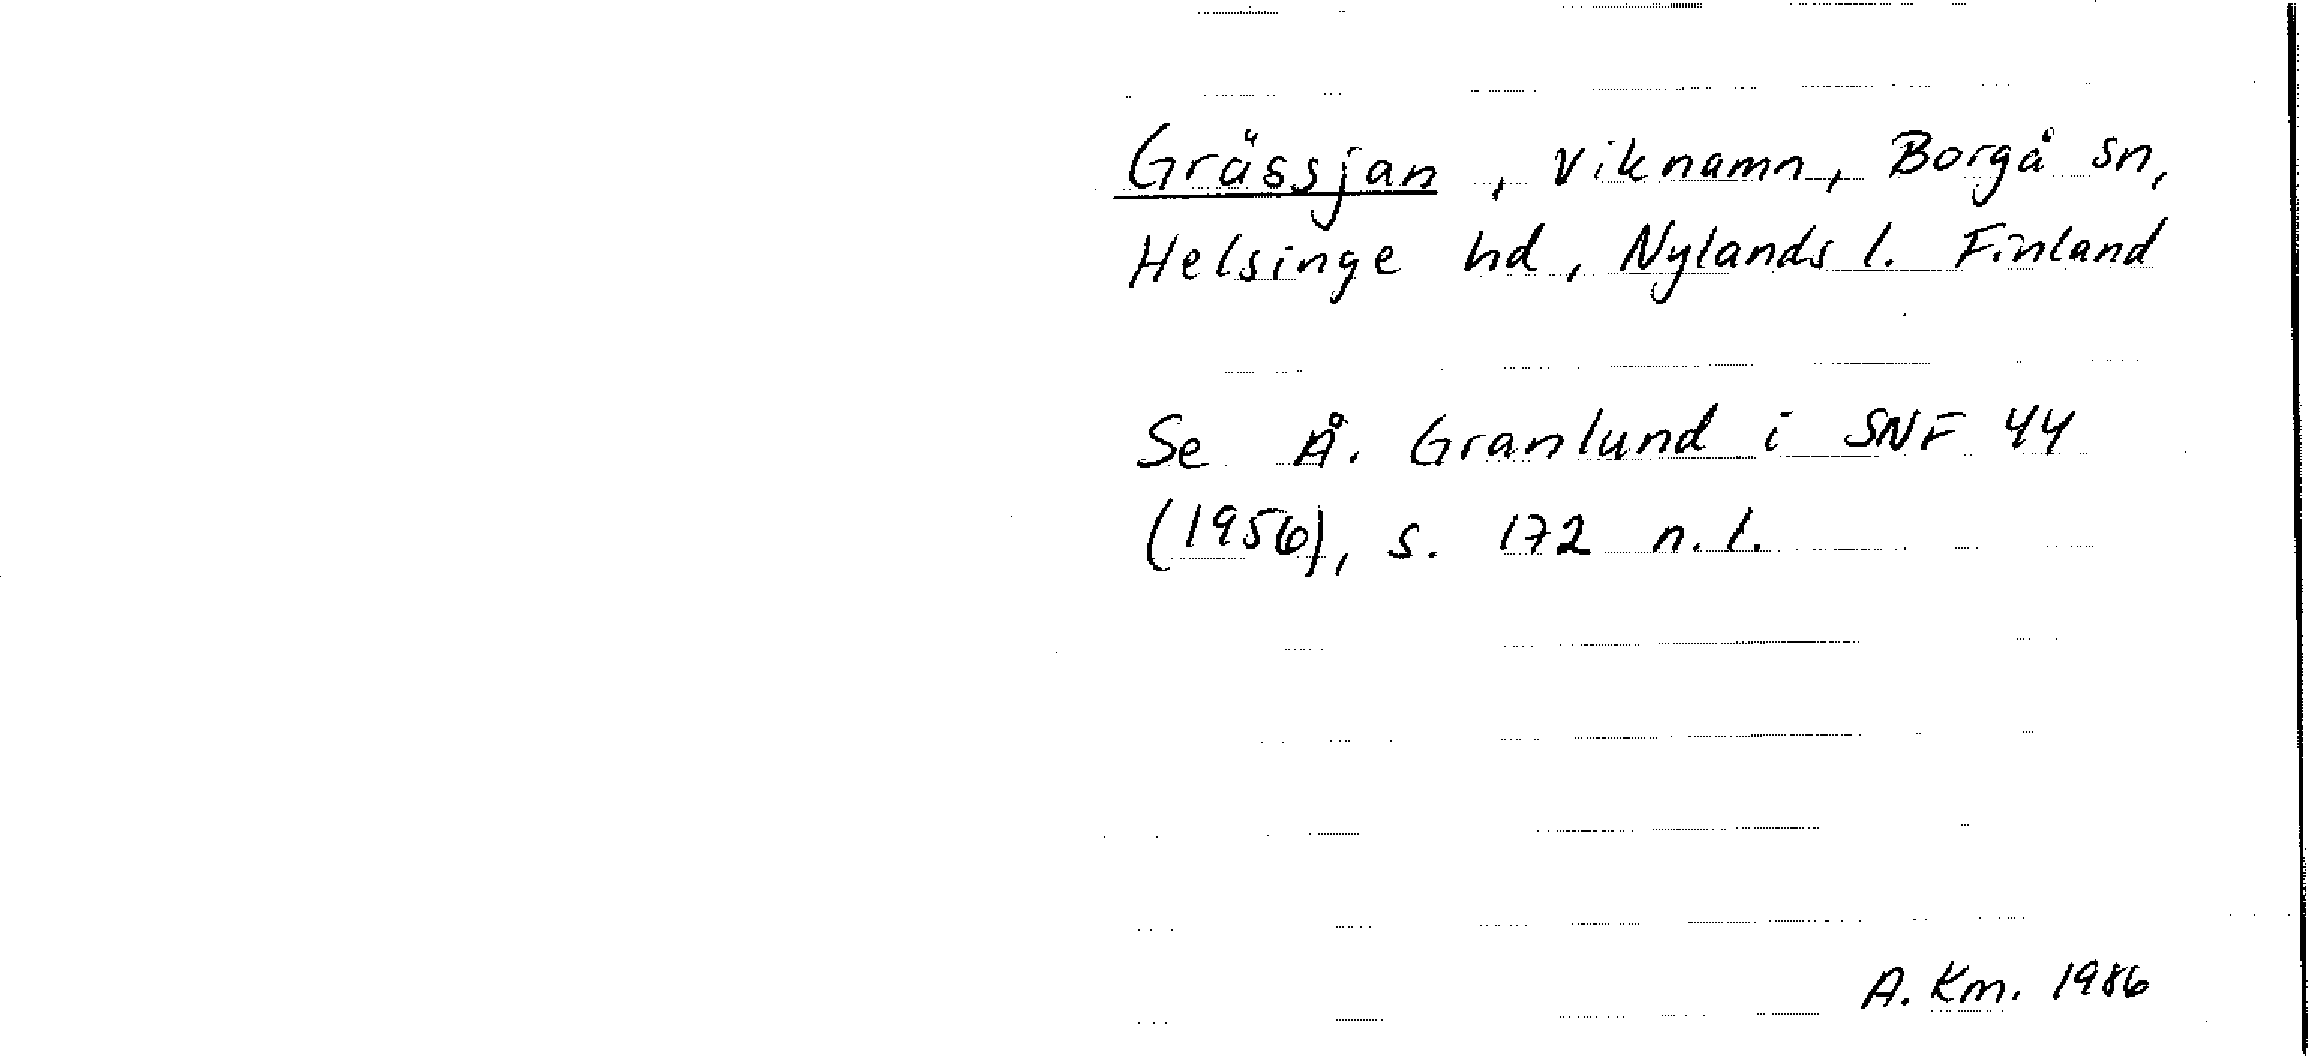 Grässjan, viknamn, Borgå sn,
Helsinge hd, Nylands l. Finland
Se Å. Granlund i SNF 44
(1956), s. 172 n.l.
A. Km. 1986